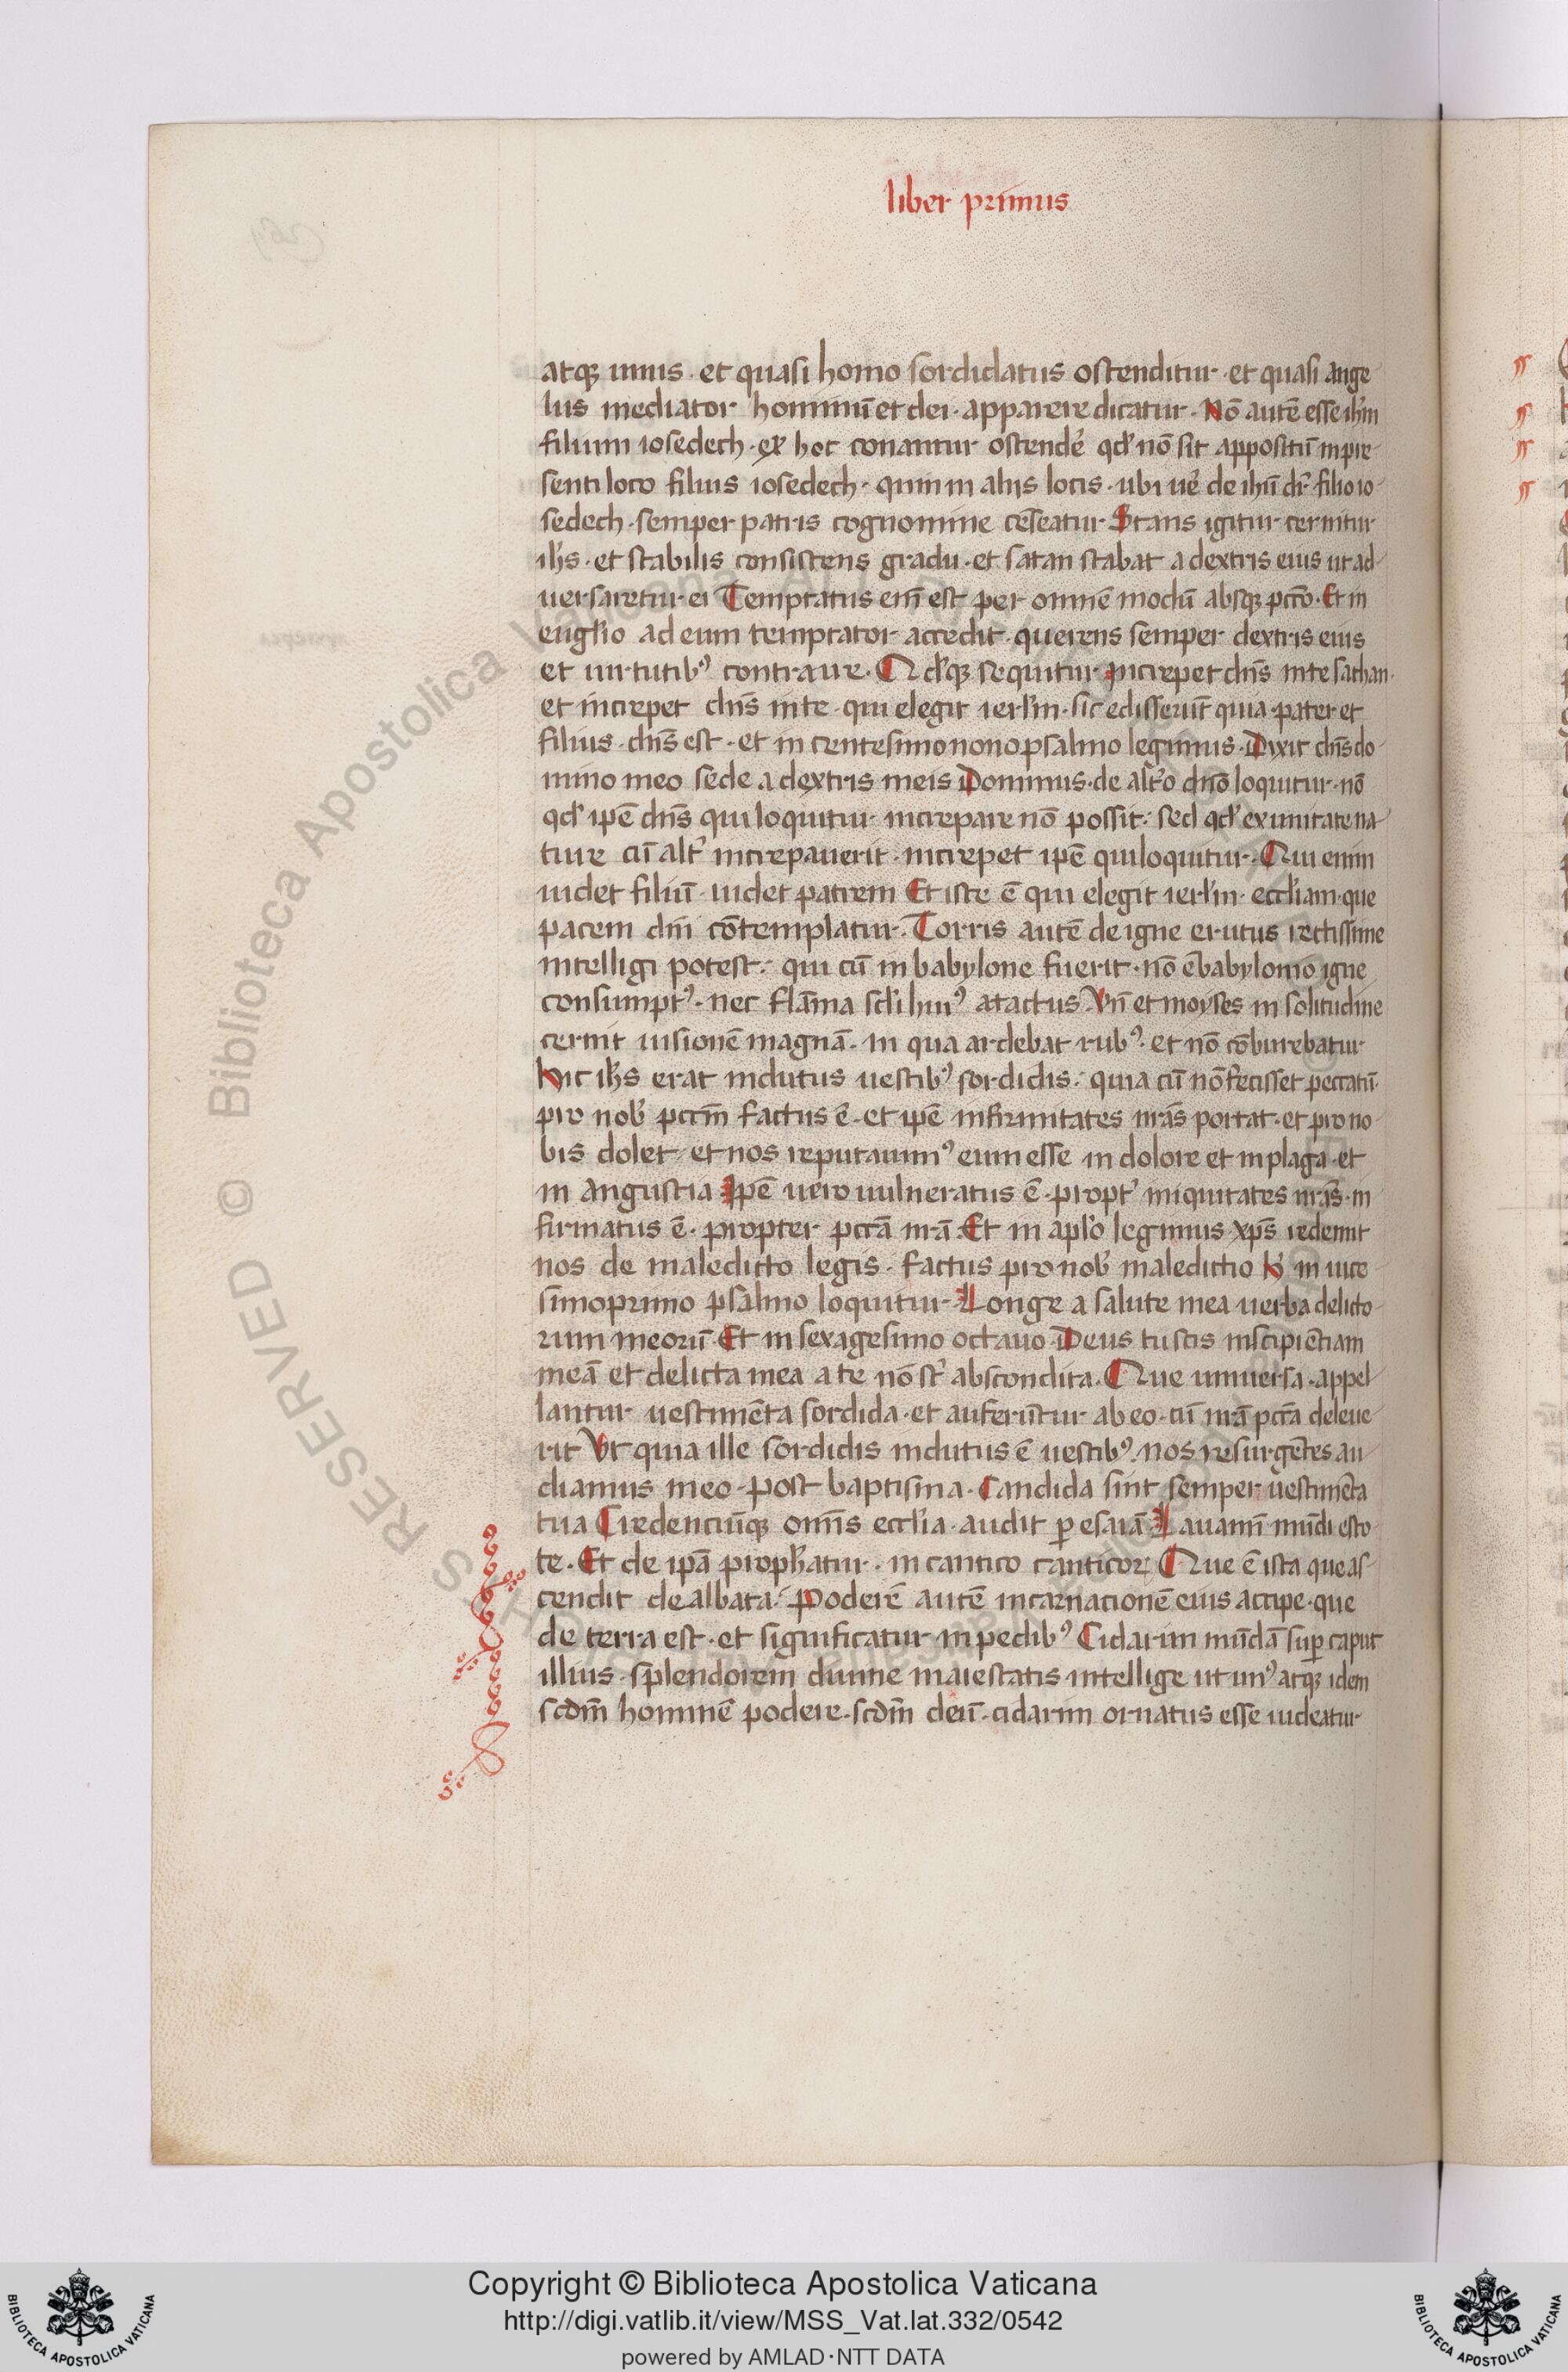 liber primus
atqꝫ unus · et quasi homo sordidatus ostenditur · et quasi ange
lus mediator hominū et dei · apparere dicatur · Nō autē esse ihm̄
filium iosedech · ex hoc conantur ostendẽ qd' nō sit appositū in pre
senti loco filius iosedech · qum in aliis locis · ubi uẽ de ihū dr̄ filio io
sedech · semper patris cognomine cēseatur · Stans igitur cernitur
ih̄s · et stabilis consistens gradu · et satan stabat a dextris eius ut ad
uersaretur ei Temptatus em̄ est per omnē modū absqꝫ pctō · Et in
euglio ad eum temptator accedit · querens semper dextris eius
et uirtutibꝰ contraire · Qd'qꝫ sequitur increpet dn̄s in te sathan ·
et increpet dn̄s in te · qui elegit ierlm̄ · sic edisserūt quia · pater et
filius · dn̄s est · et in centesimo nono psalmo legimus · Dixit dn̄s do
mino meo sede a dextris meis Dominus · de altō dn̄o loquitur · nō
qd' ipē dn̄s qui loquitur increpare nō possit · sed qd' ex unitate na
ture cū alt' increpauerit · increpet ipē qui loquitur · Qui enim
uidet filiū · uidet patrem Et iste ē qui elegit ierlm̄ · eccliam · que
pacem dn̄i cōtemplatur · Torris autē de igne erutus rectissime
intelligi potest · qui cū in babylone fuerit · nō ē babylonio igne
consumptꝰ · nec flāma sc̄li huiꝰ atactus Vn̄ et moyses in solitudine
cernit uisionē magnā · in qua ardebat rubꝰ · et nō cōburebatur
Hic ih̄s erat indutus uestibꝰ sordidis · quia cū nō fecisset peccatū ·
pro nob' pctm̄ factus ē · et ipē infirmitates nr̄as portat · et pro no
bis dolet · et nos reputauimꝰ eum esse in dolore et in plaga · et
in angustia Ipē uero uulneratus ē · propt' iniquitates nr̄as · in
firmatus ē · propter pctā nr̄ā · Et in aplo legimus xp̄s redemit
nos de maledicto legis · factus pro nob' maledictio h' in uice
simoprimo psalmo loquitur · Longe a salute mea uerba delicto
rum meorū Et in sexagesimo octauo · Deus tu scis inscipiētiam
meā et delicta mea a te nō st' abscondita · Que uniuersa · appel
lantur uestimēta sordida · et auferūtur ab eo · cū nr̄ā pctā deleue
rit Vt quia ille sordidis indutus ē uestibꝰ · nos resurgētes au
diamus meo · post baptisma · Candida sint semper uestimēta
tua Credenciūqꝫ omīs ecclia · audit ꝑ esaiā · Lauamī mūdi esto
te · Et de ipā prophatur · in cantico canticoꝝ Que ē ista que as
cendit dealbata · Poderē autē incarnationē eius accipe · que
de terra est · et significatur in pedibꝰ Cidarim mūdā suꝑ caput
illius · splendorem diuine maiestatis intellige ut unꝰ atqꝫ idem
scdm̄ hominē podere · scdm̄ deū · cidarim ornatus esse uideatur
Copyright © Biblioteca Apostolica Vaticana
http://digi.vatlib.it/view/MSS_Vat.lat.332/0542
powered by AMLAD·NTT DATA